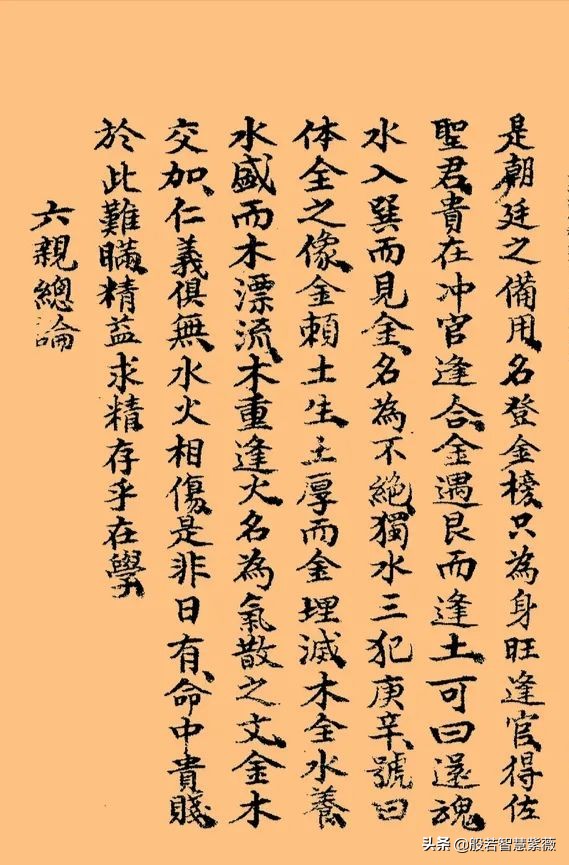 是朝廷之備用名登金榜只為身旺逢官得佐
聖君貴在冲官逢合金遇艮而逢土可曰還魂
水入巽而見金名為不絕獨水三犯庚辛號曰
体全之像金賴土生土厚而金埋滅木全水養
水盛而木漂流木重逢火名為氣散之文金木
交加仁義俱無水火相傷是非日有命中貴賤
於此難瞞精益求精存乎在學
六親總論
头条 @般若智慧紫薇